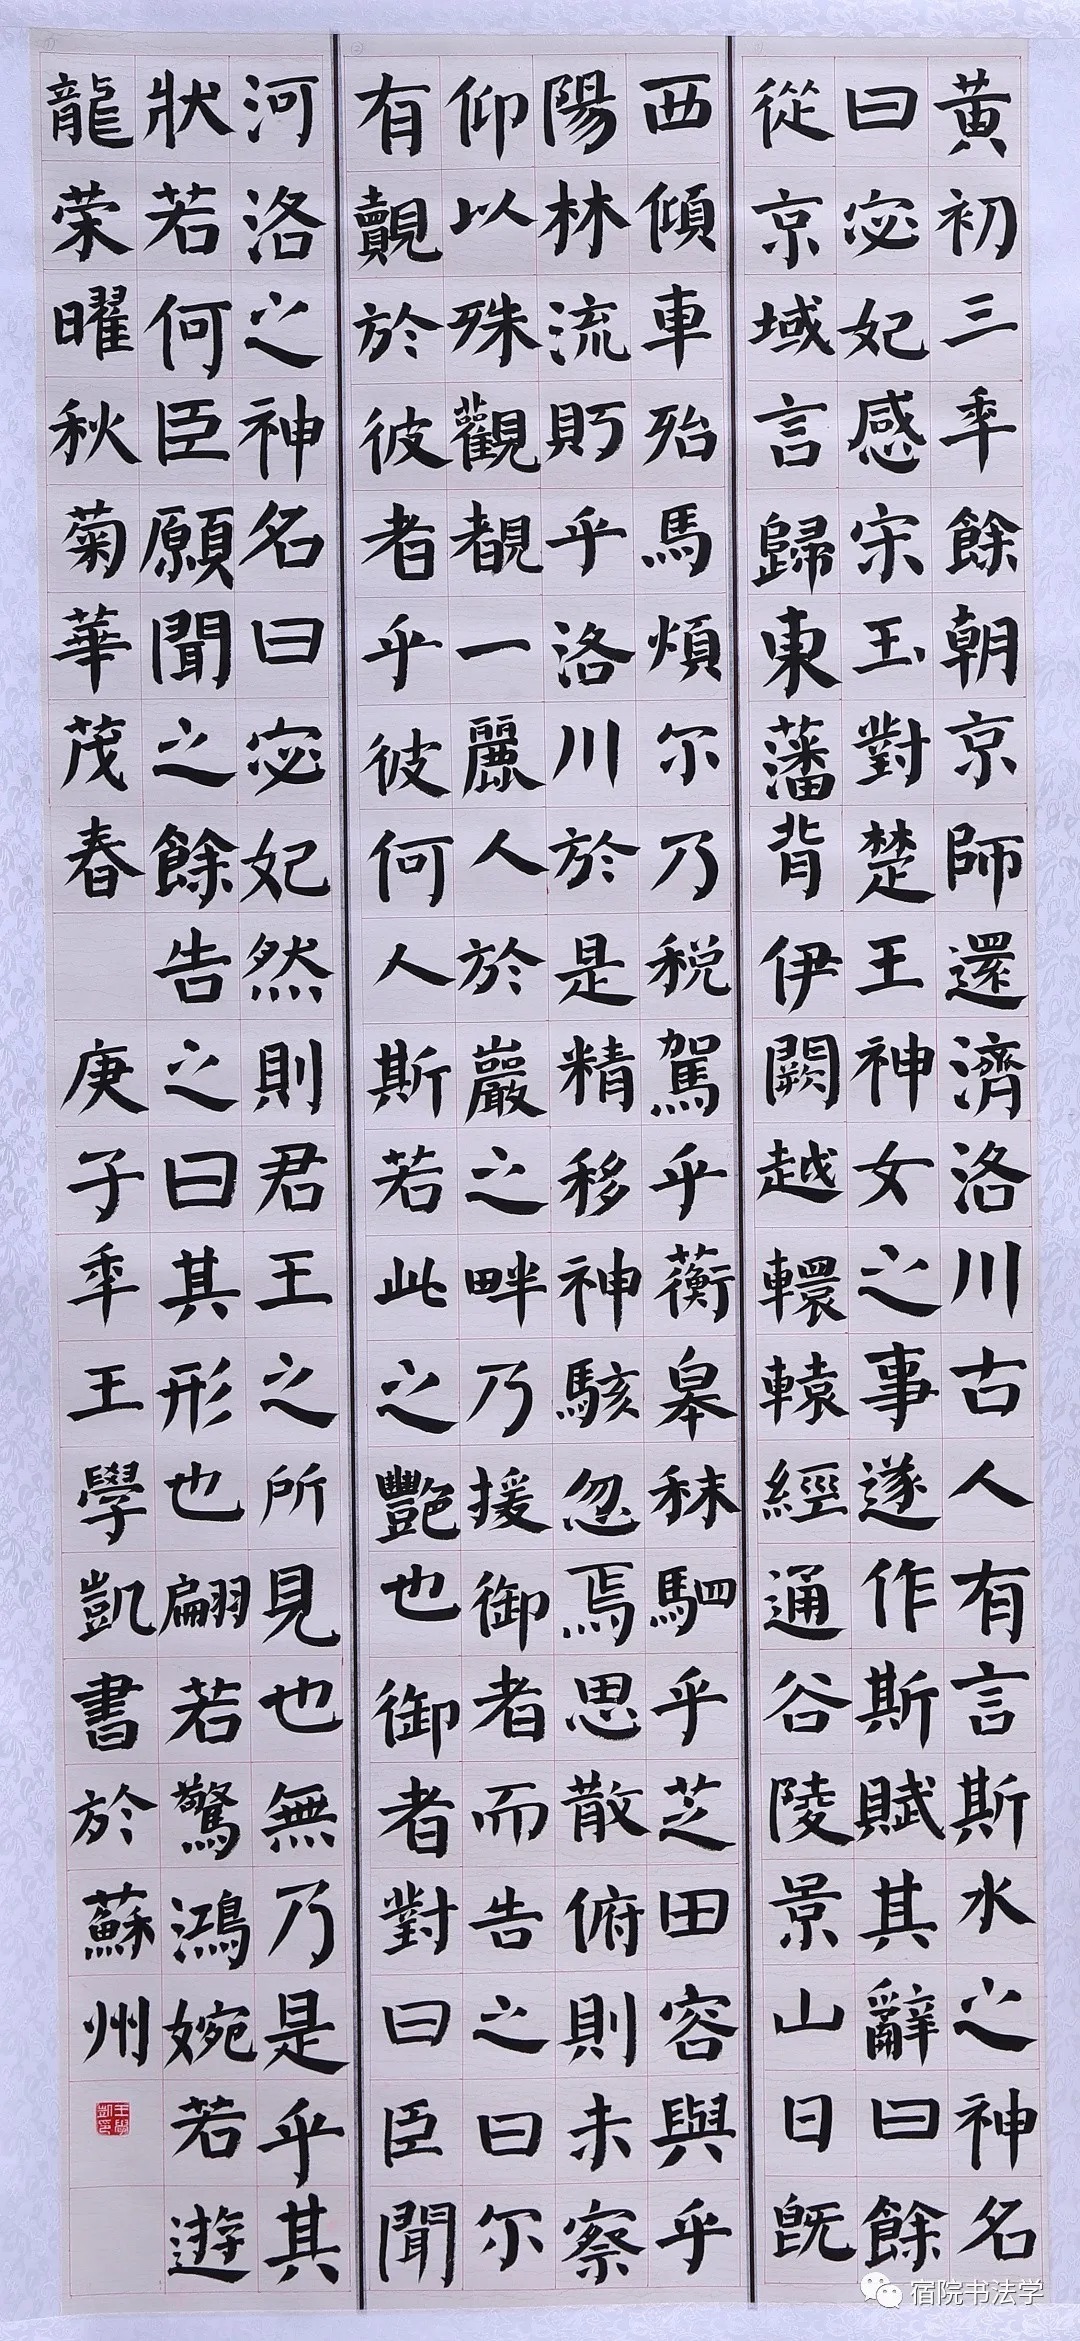 黄初三年餘朝京師還濟洛川古人有言斯水之神名
曰宓妃感宋玉對楚王神女之事遂作斯賦其辭曰餘
從京域言歸東藩背伊闕越轘轅經通谷陵景山日既
西傾車殆馬煩尔乃税駕乎蘅皋秣駟乎芝田容與乎
陽林流眄乎洛川於是精移神駭忽焉思散俯則未察
仰以殊觀覩一麗人於巖之畔乃援御者而告之曰尔
有覿於彼者乎彼何人斯若此之艷也御者對曰臣聞
河洛之神名曰宓妃然則君王之所見也無乃是乎其
狀若何臣願聞之餘告之曰其形也翩若驚鴻婉若遊
龍荣曜秋菊華茂春 庚子年王學凱書於蘇州
王學凱印
宿院书法学